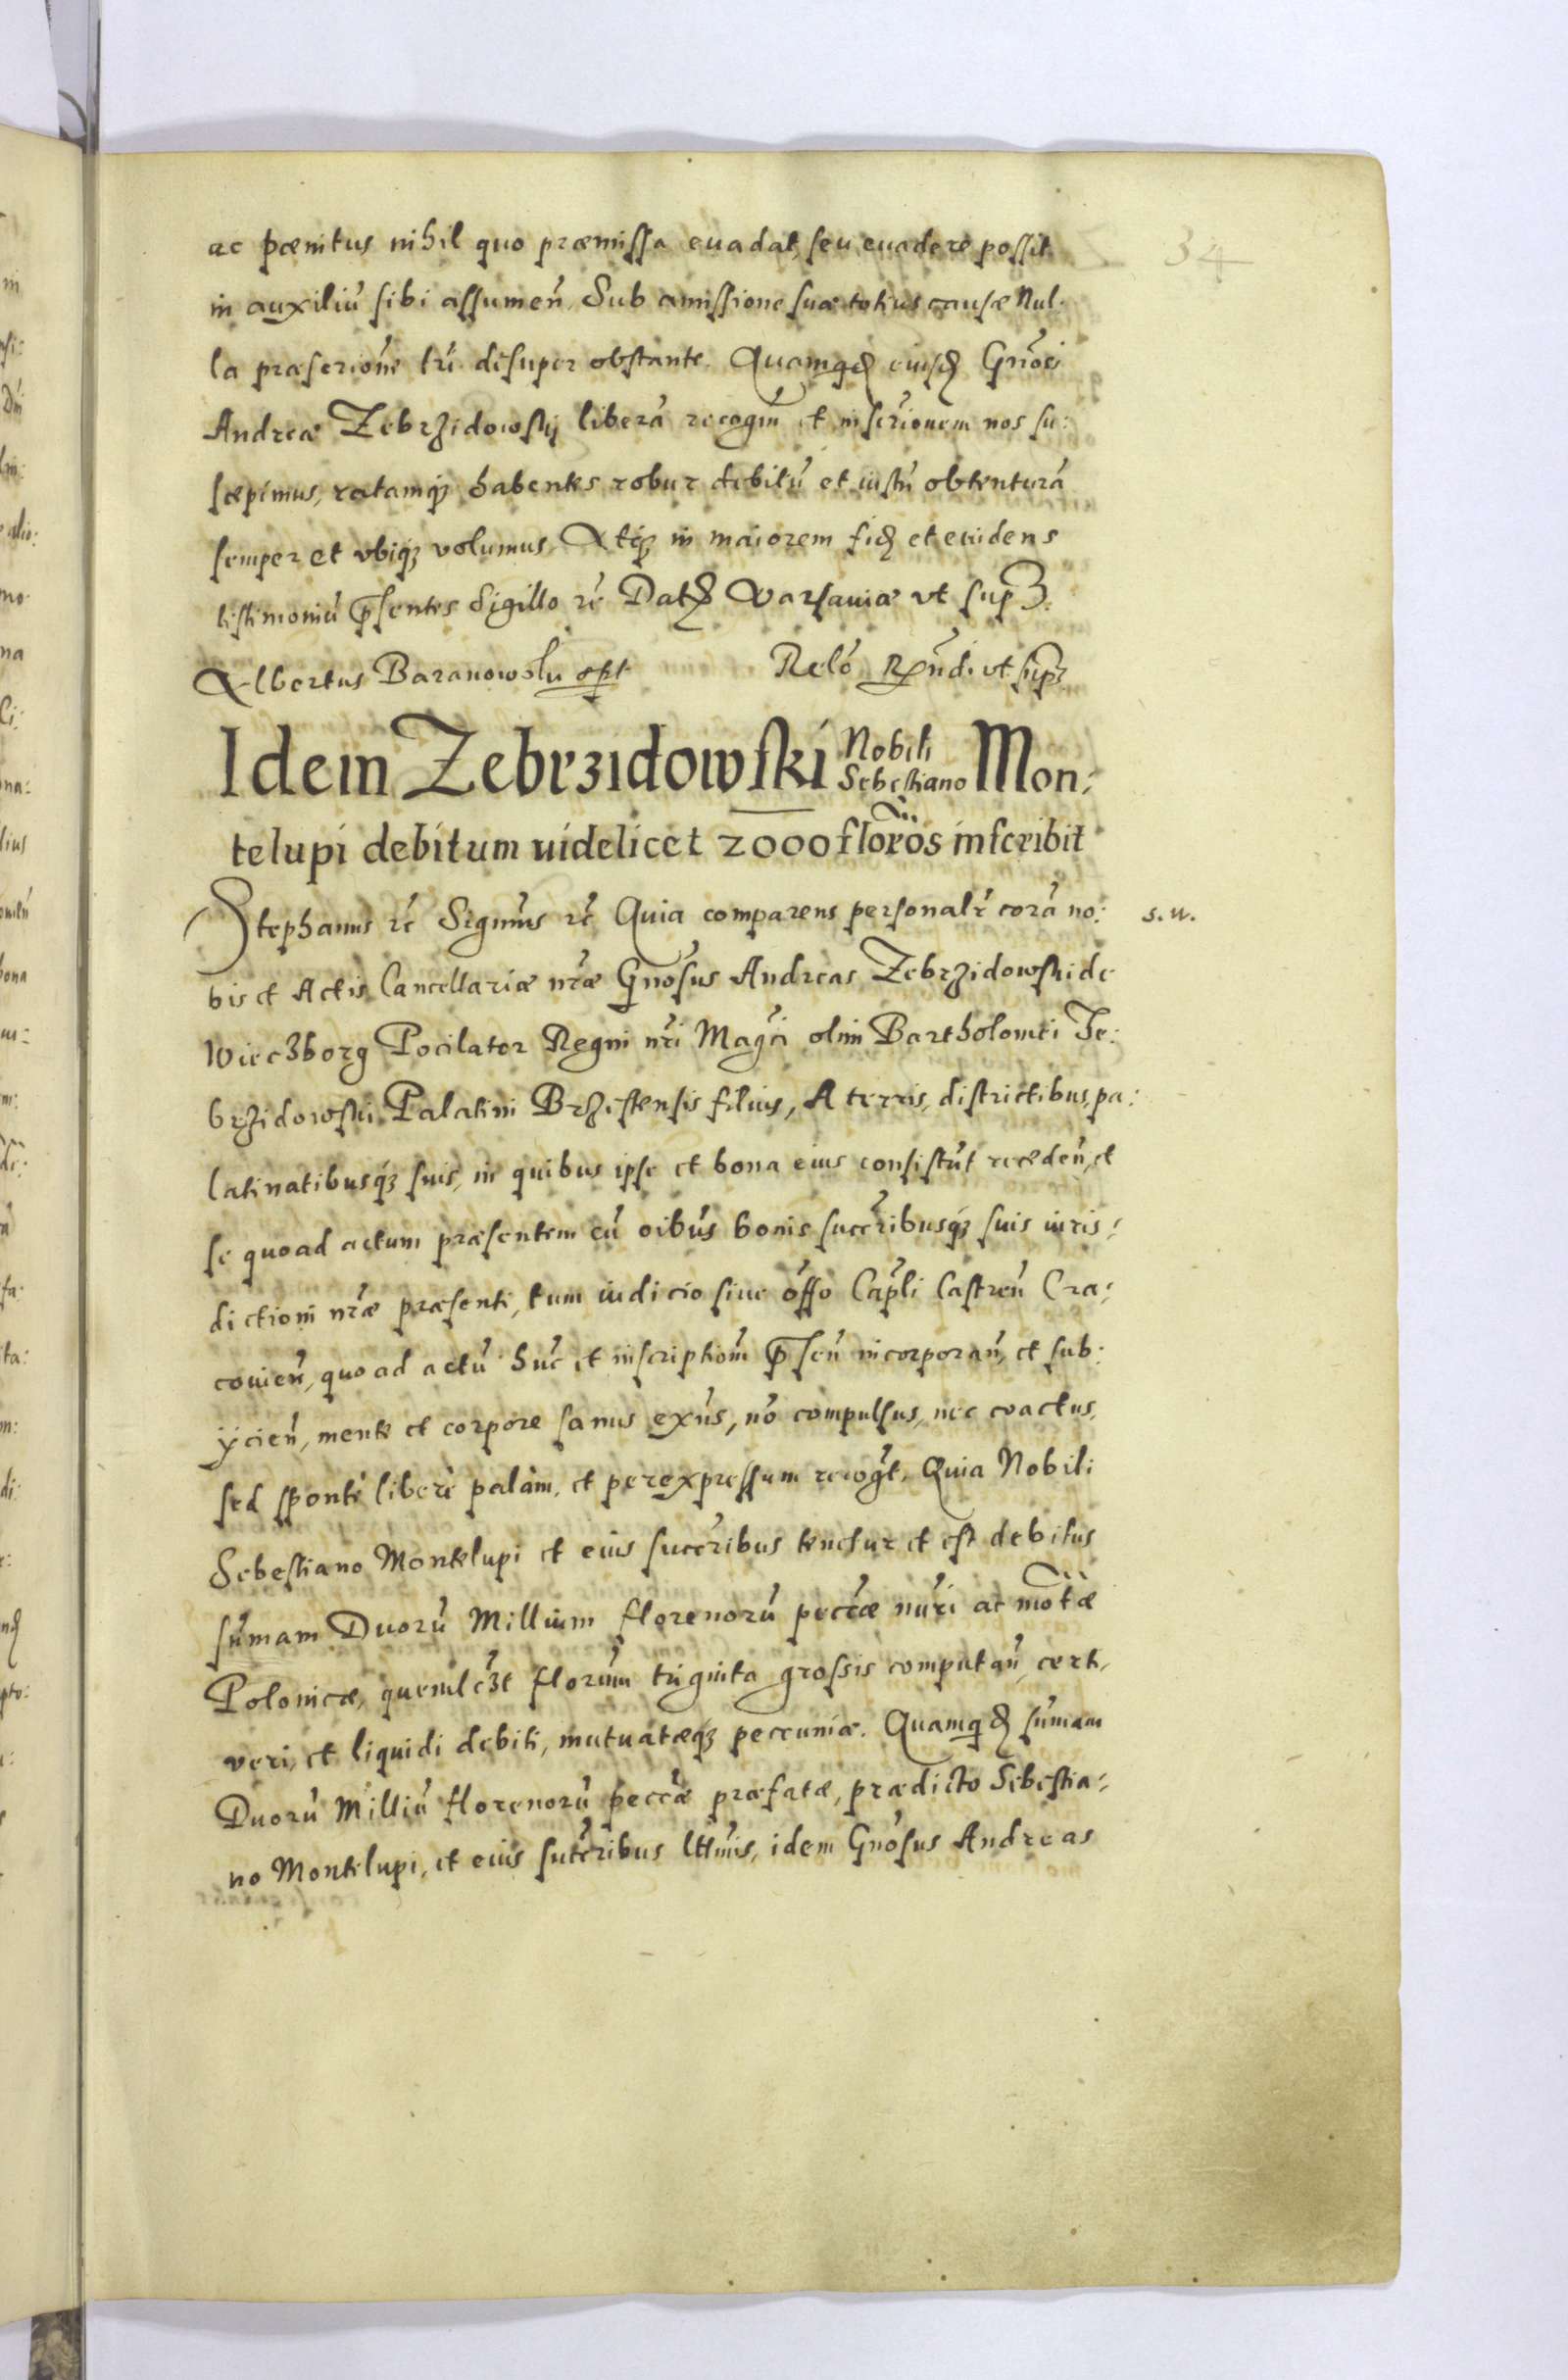 34
ac pœnitus nihil quo præmissa euadat, seu euadere possit
in auxiliū sibi assumen̄. Sub amissione suæ totius causæ Nul-
la præscrione tr̄i desuper obstante. Quamqđ eiusđ Gn̄osi
Andreæ Zebrzidowskij liberā recogn̄ et inscrīonem nos su:
scæpimus, ratamq₃ habentes robur debitū et iustū obtenturā
semper et vbiq₃ volumus. Atq₃ in maiorem fiđ et euidens
testimoniū p̄sentes Sigillo rc̄ Datđ Varsauiæ vt sup
Albertus Baranowski spt Relō Rn̄di vt sup
Idem Zebrzidowski Nobili Sebestiano Mon:
telupi debitum uidelicet 2000 florōs inscribit
Stephanus rc̄ Signūs rc̄ Quia comparens personalr̄ corā no: s. w.
bis et Actis Cancellariæ nr̄æ Gn̄osus Andreas Zebrzidowski de
Wieczborg Pocilator Regni nr̄i Magci olim Bartholomei Ze:
brzidowski Palatini Brzestensis filius, A terris, districtibus, pa:
latinatibusq₃ suis, in quibus ipse et bona eius consistūt recedeñ, et
se quoad actum præsentem cū oībus bonis succr̄ibusq₃ suis iuris:
dictioni nr̄æ præsenti, tum iudicio siue offō Capli Castreñ Cra:
couieñ, quo ad actū hūc et inscriptiom̄ p̄señ incorporañ, et sub:
ijcieñ, mente et corpore sanus exn̄s, nō compulsus, nec coactus,
sed spontè liberè palàm, et per expressum recogt̄. Quia Nobili
Sebestiano Montelupi et eius succr̄ibus tenetur et est debitus
sūmam Duorū Millium florenorū peccæ nūri ac motæ
Polonicæ, quemlc₃t florm̄ triginta grossis computañ, certi,
veri, et liquidi debiti, mutuatæq₃ peccuniæ. Quamqđ sūmam
Duorū Milliū florenorū peccæ præfatæ, prædicto Sebestia:
no Montelupi, et eius succr̄ibus lttmis, idem Gn̄osus Andreas